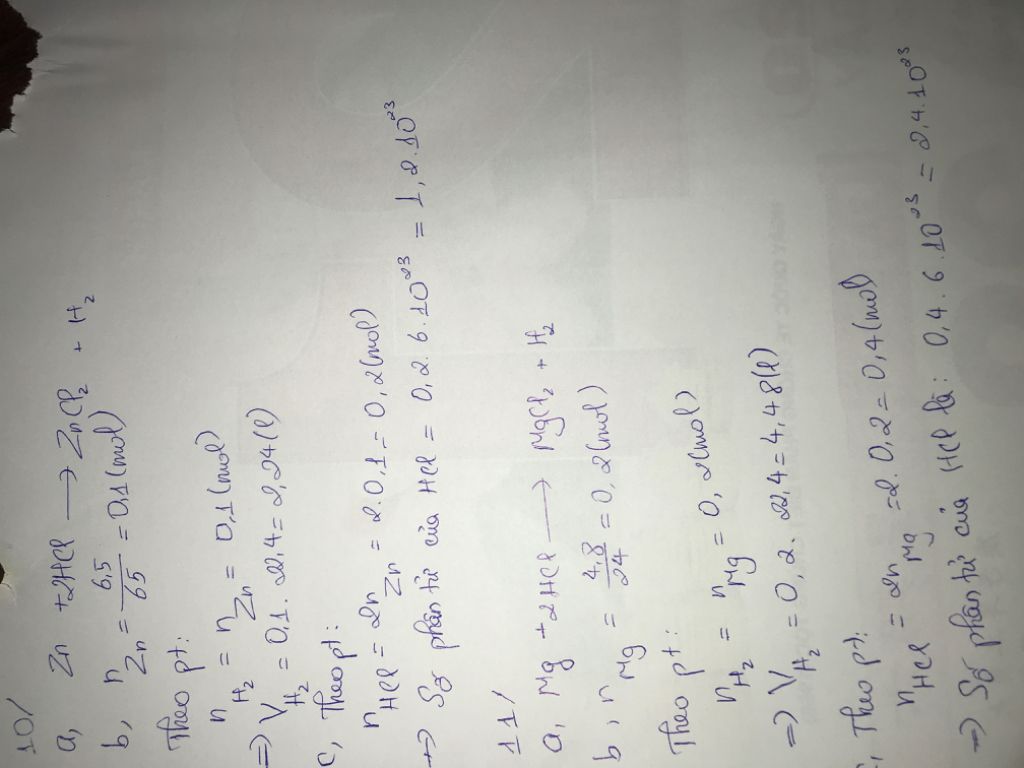 10/
a, Zn + 2HCl → ZnCl₂ + H₂
b, n Zn = 6,5/65 = 0,1 (mol)
Theo pt:
n H₂ = n Zn = 0,1 (mol)
=> V H₂ = 0,1 . 22,4 = 2,24 (l)
c, Theo pt:
n HCl = 2n Zn = 2 . 0,1 = 0,2 (mol)
=> Số phân tử của HCl = 0,2 . 6 . 10²³ = 1,2 . 10²³
11/
a, Mg + 2HCl → MgCl₂ + H₂
b, n Mg = 4,8/24 = 0,2 (mol)
Theo pt:
n H₂ = n Mg = 0,2 (mol)
=> V H₂ = 0,2 . 22,4 = 4,48 (l)
c, Theo pt:
n HCl = 2n Mg = 2 . 0,2 = 0,4 (mol)
=> Số phân tử của HCl là: 0,4 . 6 . 10²³ = 2,4 . 10²³